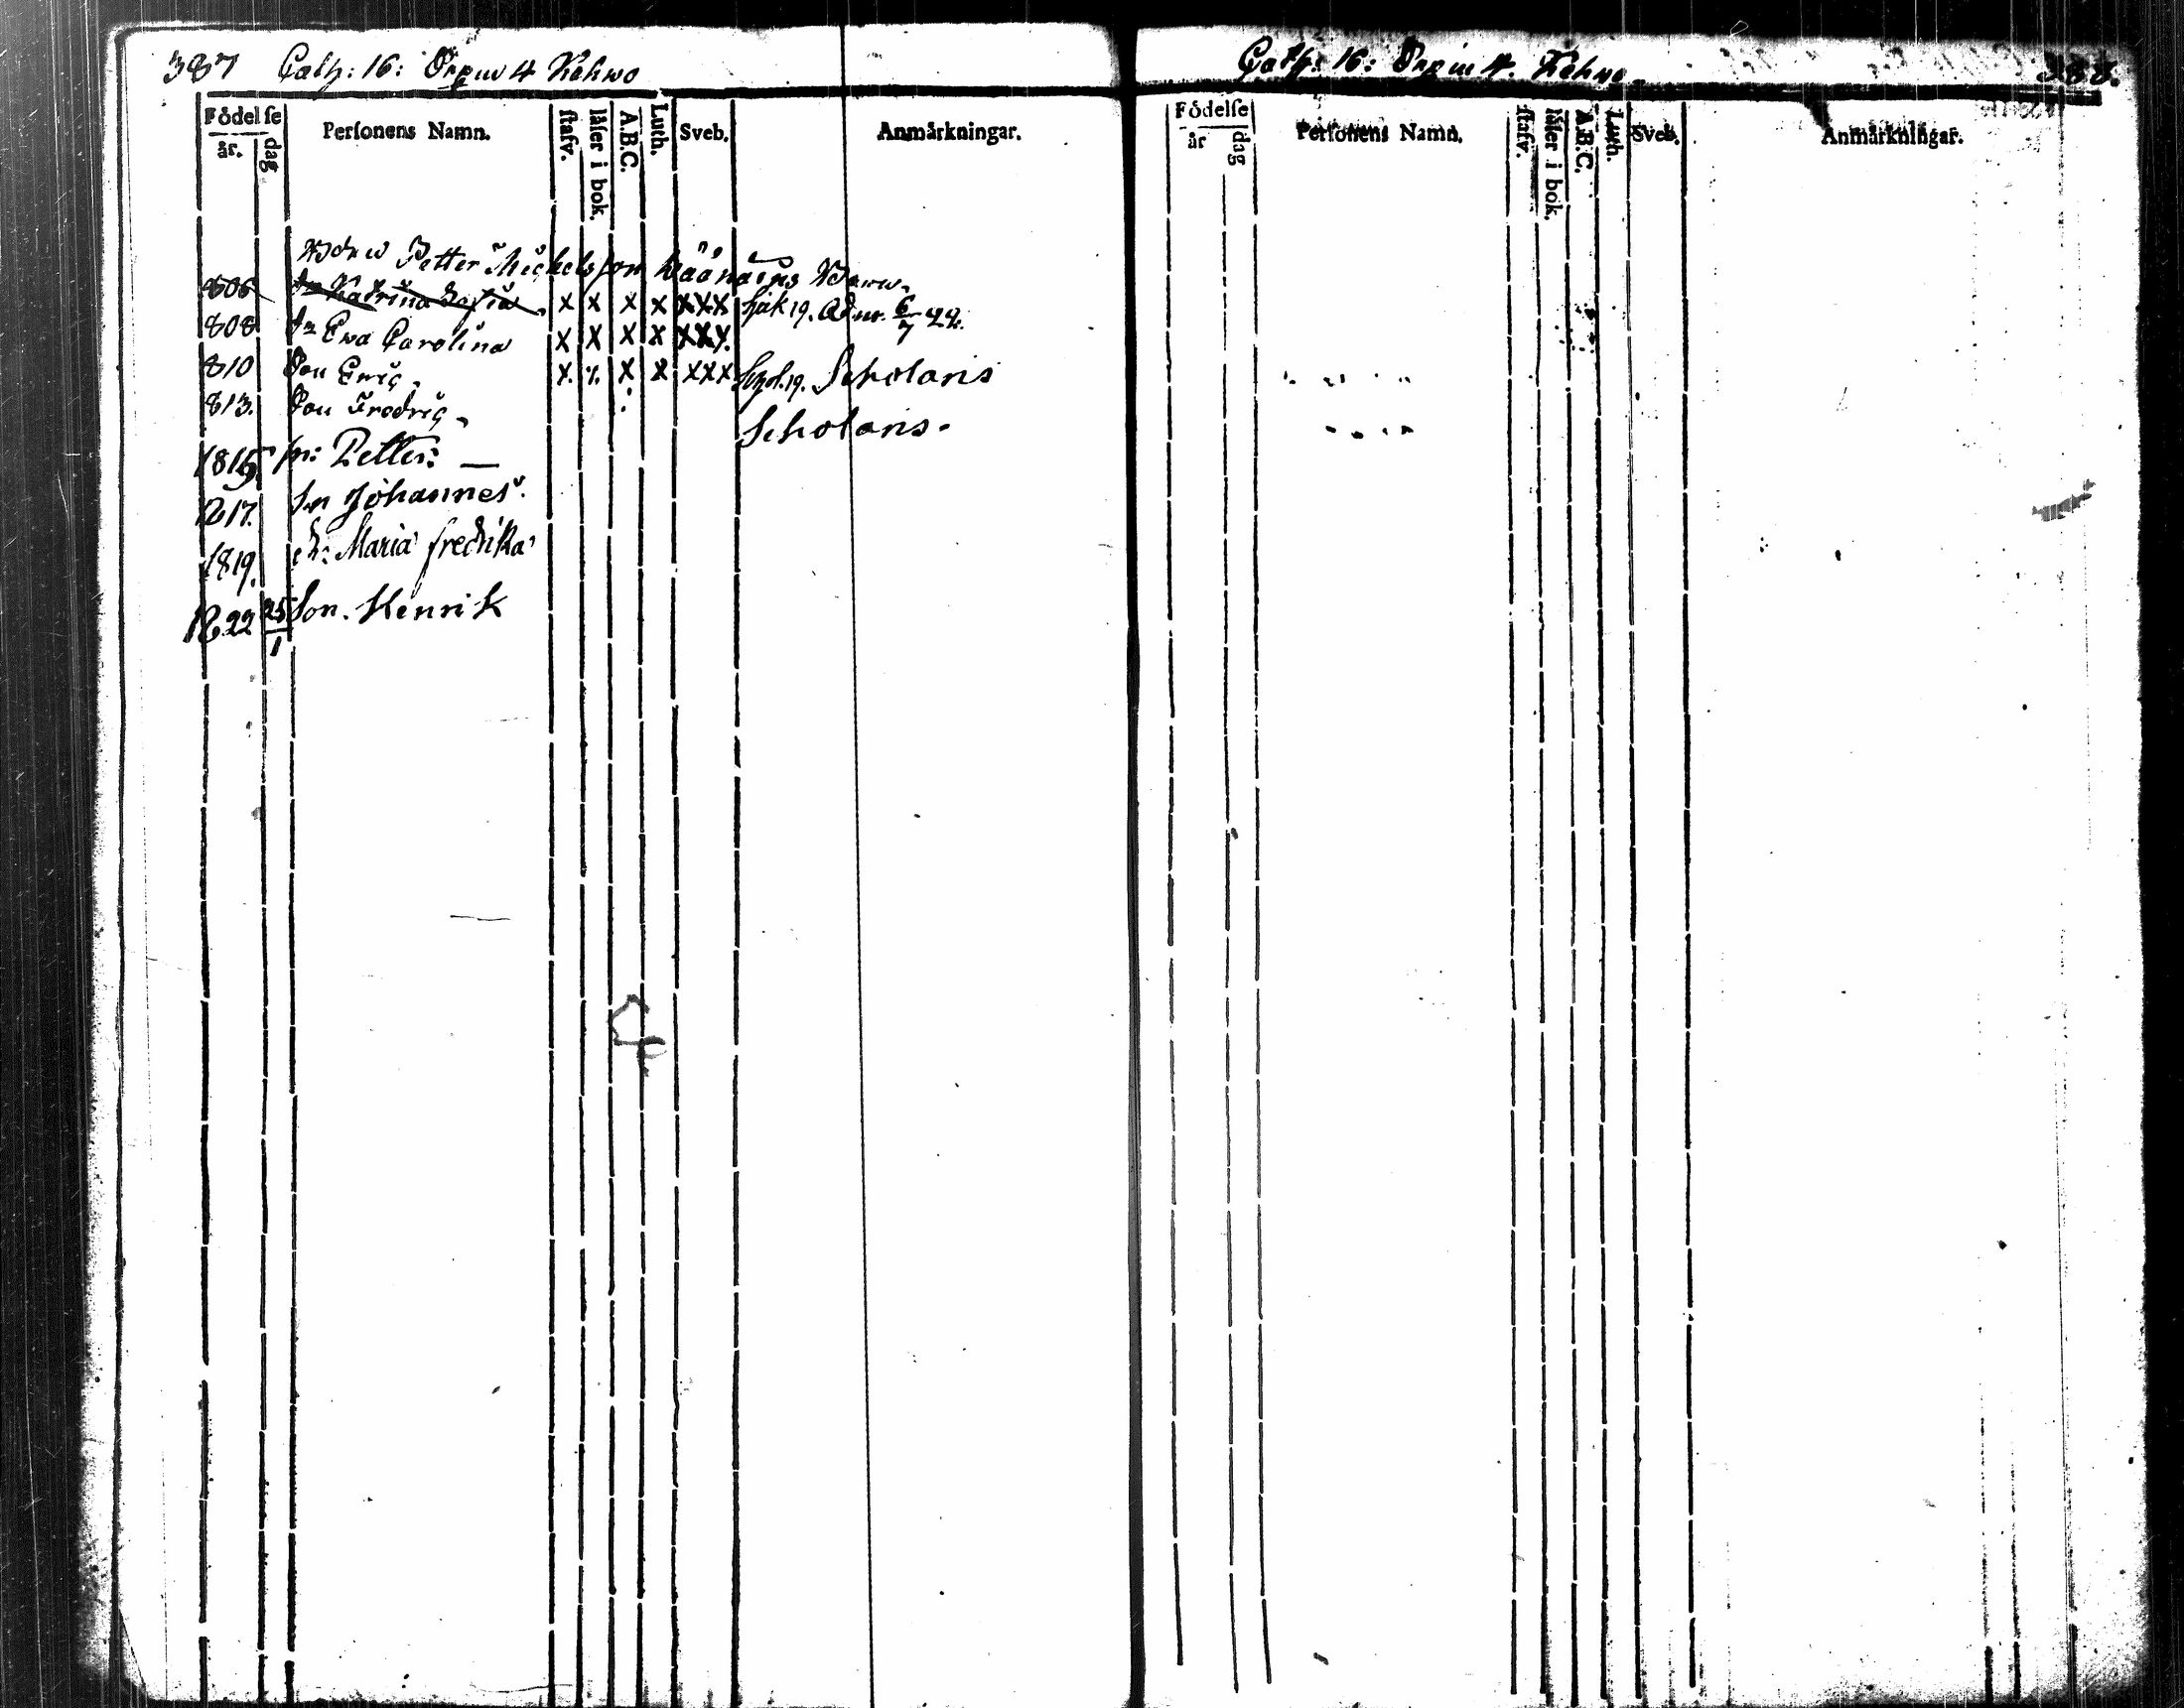 387 Cath: 16: Kehwo
Födelse
år. dag
Personens Namn.
stafv.
läser i bok.
A.B.C.
Luth.
Sveb.
Anmärkningar.
Petter Michelsson Wäänäins Barn.
806 dr Katrina Sofia. x x x x xxx adm. 6/7 22.
808 dr Ewa Carolina x x x x xxx.
810 Son Eric. x. x. x x xxx Scholaris
813. Son Fredric Scholaris.
1815. sn: Petter: —
1817. sn Johannes.
1819. dr: Maria fredrika
1822 25/1 Son. Henrik
Cath: 16: Kehwo 388.
Födelse
år dag
Personens Namn.
stafv.
läser i bok.
A.B.C.
Luth.
Sveb.
Anmärkningar.